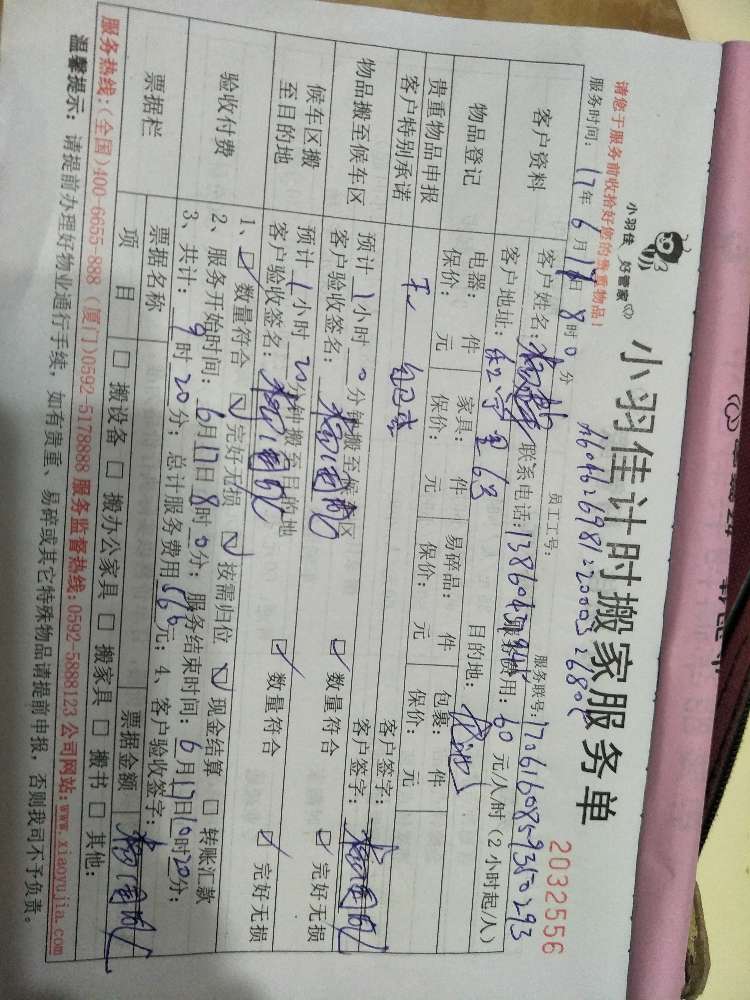 小羽佳 好管家
小羽佳计时搬家服务单
2032556
请您于服务前收拾好您的贵重物品！
员工工号：
服务联号：1706160859350293
服务时间：17年6月17日8时0分
客户资料
客户姓名：
联系电话：
服务费用：60元/人/时（2小时起/人）
客户地址：
目的地：
物品登记
电器： 件 家具： 件 易碎品： 件 包裹： 件
保价： 元 保价： 元 保价： 元 保价： 元
贵重物品申报
客户特别承诺
客户签字：
物品搬至候车区
预计1小时0分钟搬至候车区
客户验收签名：
数量符合 完好无损
客户签字：
候车区搬
至目的地
预计1小时20分钟搬至目的地
客户验收签名：
数量符合 完好无损
验收付费
1、 数量符合 完好无损 按需归位 现金结算 转账汇款
2、服务开始时间：6月17日8时0分；服务结束时间：6月17日10时20分；
3、共计： 时20分；总计服务费用 元；4、客户验收签字：
票据栏
票据名称
票据金额
项 目
搬设备 搬办公家具 搬家具 搬书 其他：
服务热线：(全国)400-6655-888 (厦门)0592-5178888 服务监督热线：0592-5888123 公司网站：www.xiaoyujia.com
温馨提示：请提前办理好物业通行手续，如有贵重、易碎或其它特殊物品请提前申报，否则我司不予负责。